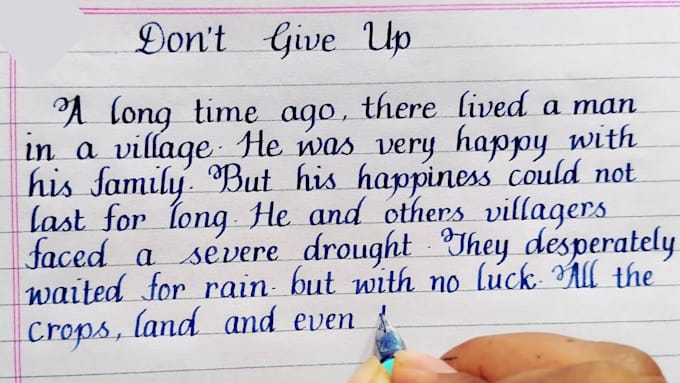 Don't Give Up
A long time ago, there lived a man
in a village. He was very happy with
his family. But his happiness could not
last for long. He and others villagers
faced a severe drought. They desperately
waited for rain. but with no luck. All the
crops, land and even